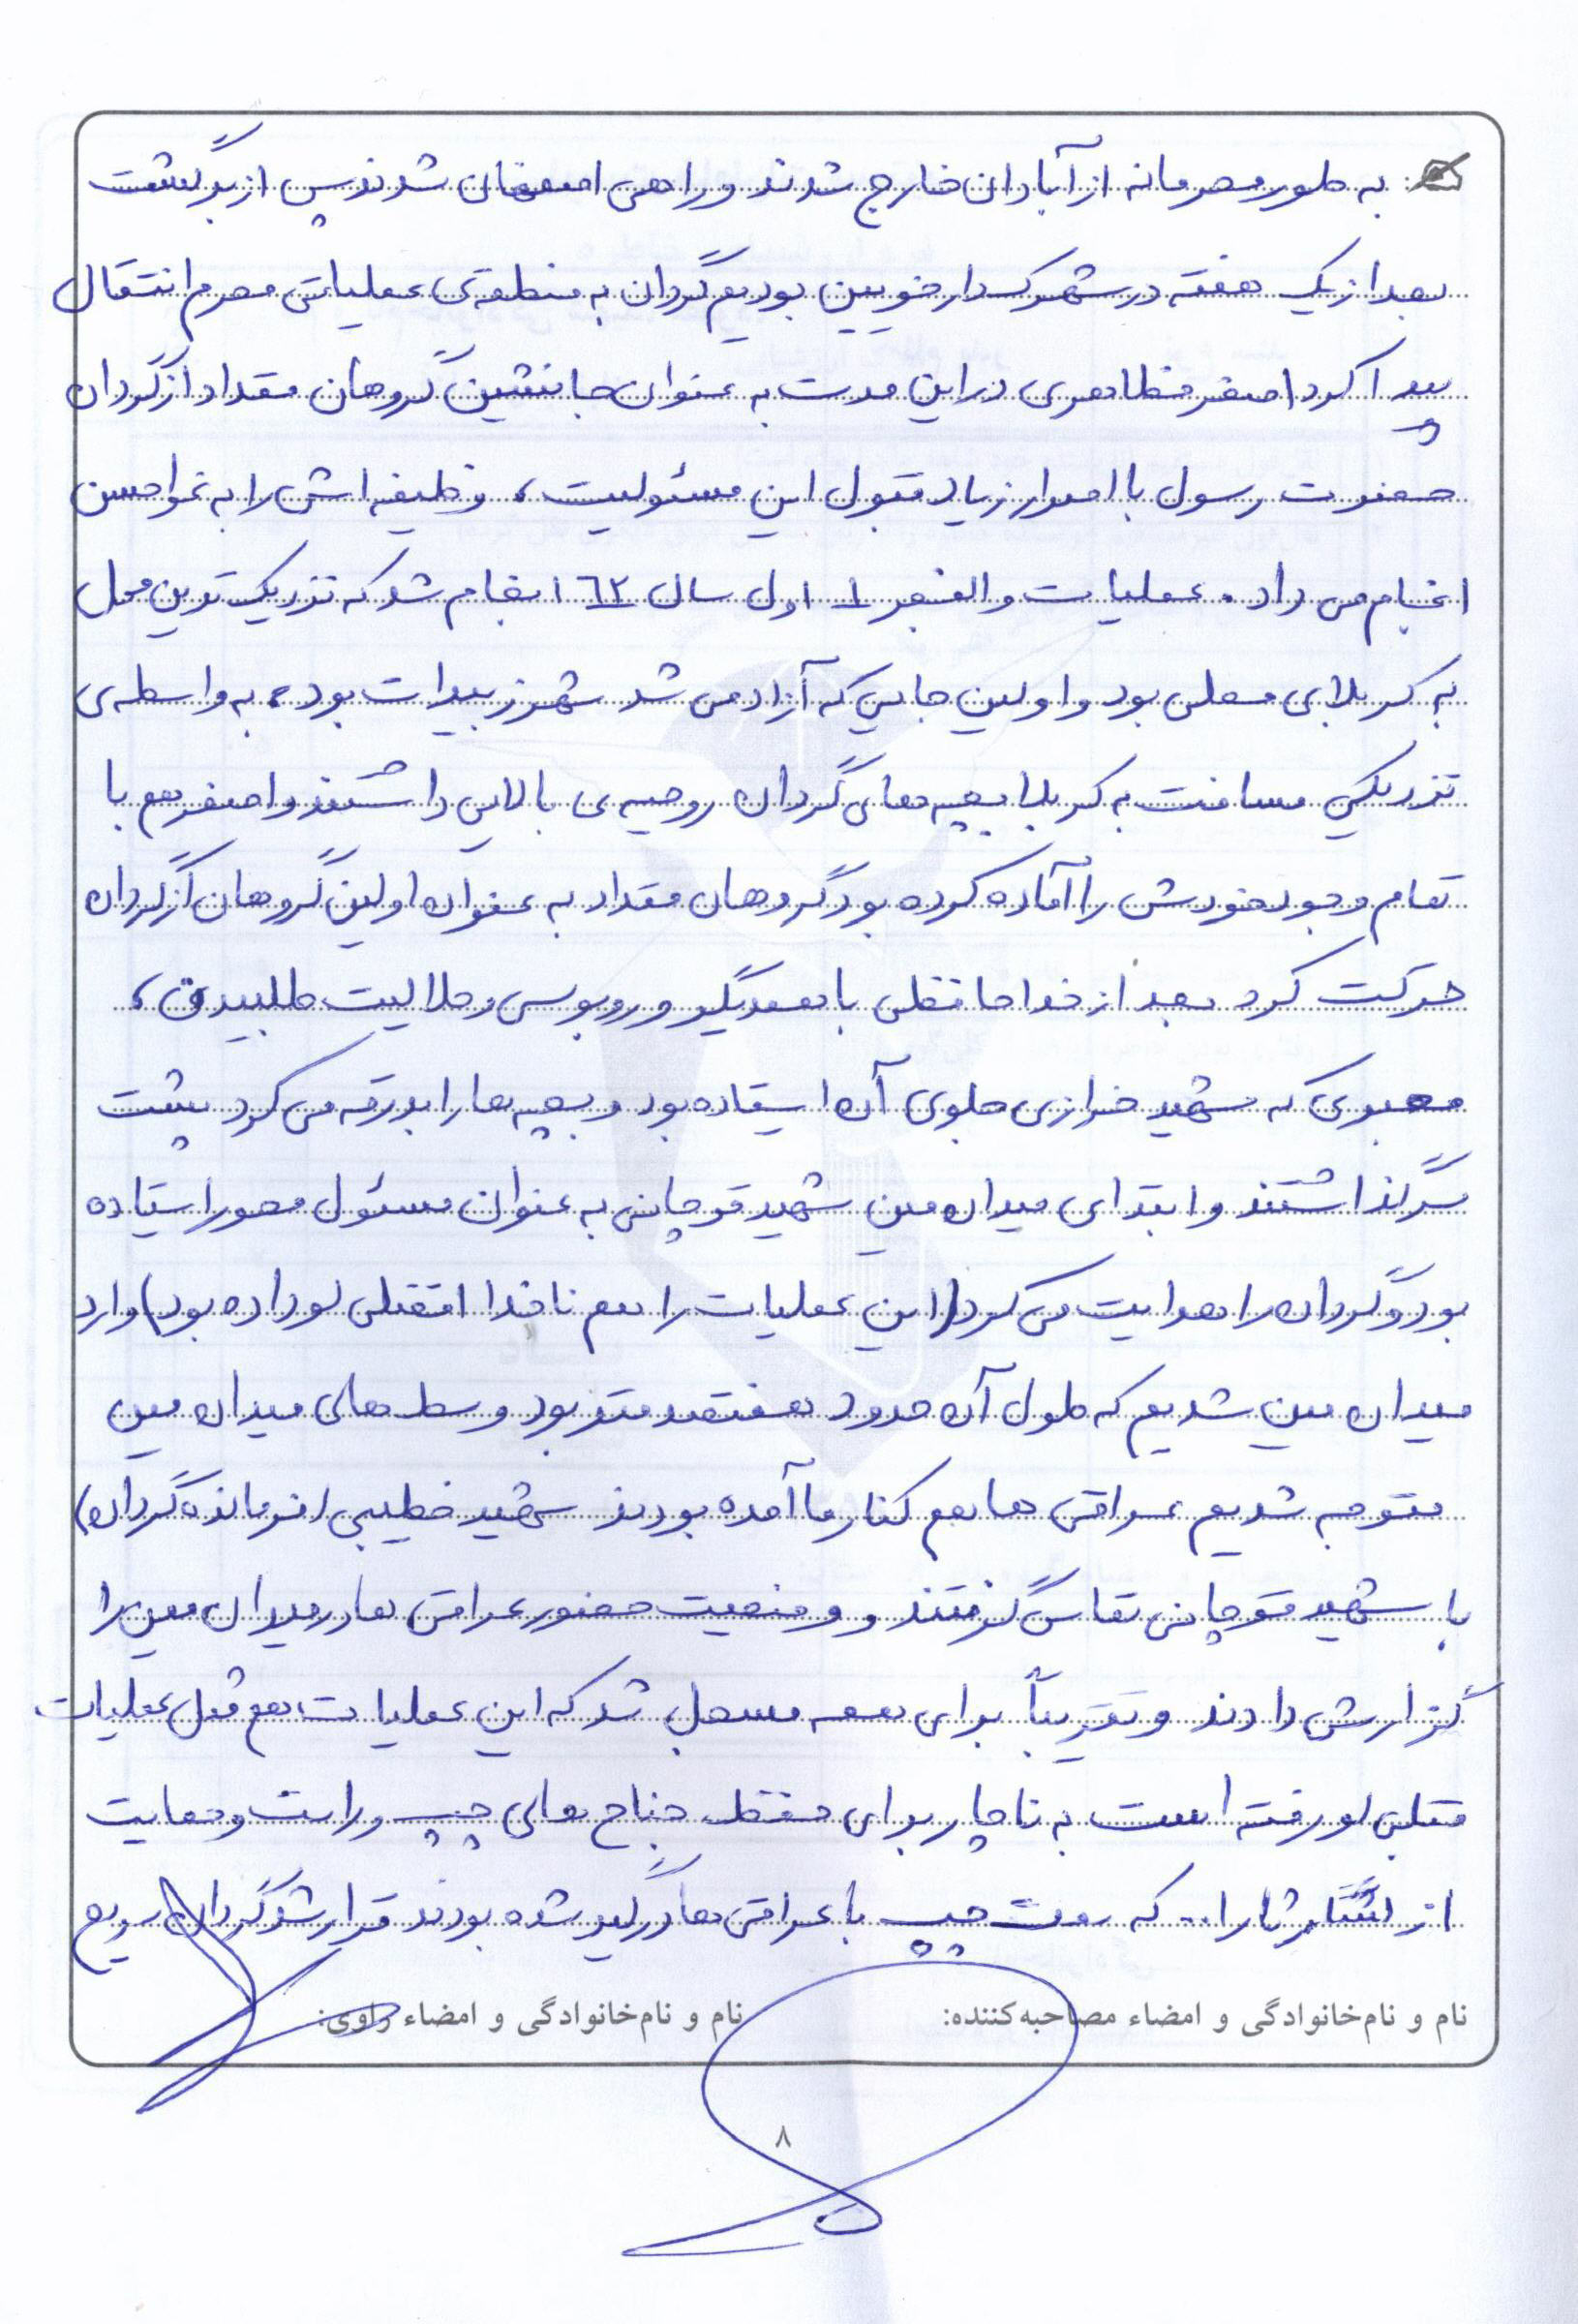 به طور محرمانه از آبادان خارج شدند و راهی اصفهان شدند پس از برگشت
بعد از یک هفته در شهرک دارخویین بودیم گردان به منطقه‌ی عملیاتی محرم انتقال
پیدا کرد اصغر مظاهری در این مدت به عنوان جانشین گروهان مقداد از گردان
حضرت رسول با اصرار زیاد قبول این مسئولیت، وظیفه اش را به نحو احسن
انجام می داد. عملیات والفجر ۱ اول سال ۶۲ انجام شد که نزدیک ترین محل
به کربلای معلی بود و اولین جایی که آزاد می شد شهر زبیدات بود، به واسطه‌ی
نزدیکی مسافت به کربلا بچه های گردان روحیه‌ی بالایی داشتند و اصغر هم با
تمام وجود خودش را آماده کرده بود گروهان مقداد به عنوان اولین گروهان از گردان
حرکت کرد بعد از خداحافظی با همدیگر و روبوسی و حلالیت طلبیدن،
معبری که شهید خرازی جلوی آن ایستاده بود و بچه ها را بدرقه می کرد پشت
سر گذاشتند و ابتدای میدان مین شهید قوچانی به عنوان مسئول محور ایستاده
بود و گردان را هدایت می کرد (این عملیات را هم ناخدا افضلی لو داده بود) وارد
میدان مین شدیم که طول آن حدود هفتصد متر بود وسط های میدان مین
متوجه شدیم عراقی ها هم کنار ما آمده بودند شهید خطیبی (فرمانده گردان)
با شهید قوچانی تماس گرفتند و وضعیت حضور عراقی ها در میدان مین را
گزارش دادند و تقریباً برای همه مسجل شد که این عملیات هم مثل عملیات
قبلی لو رفته است به ناچار برای حفظ جناح های چپ و راست و حمایت
از لشگر ثارا... که سمت چپ با عراقی ها درگیر شده بودند قرار شد گردان سریع
نام و نام‌خانوادگی و امضاء مصاحبه‌کننده: نام و نام‌خانوادگی و امضاء راوی:
۸